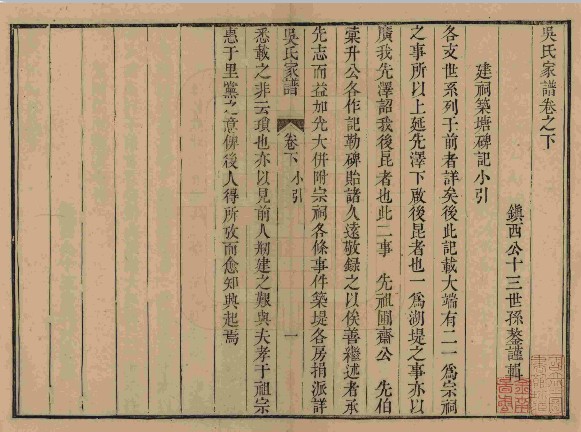 吳氏家譜卷之下
鎮西公十三世孫鏊謹輯
建祠築塘碑記小引
各支世系列于前者詳矣後此記載大端有二一爲宗祠
之事所以上延先澤下啟後昆者也一爲湖堤之事亦以
廣我先澤詔我後昆者也此二事 先祖圃齋公 先伯
稾升公各作記勒碑貽諸久遠敬錄之以俟善繼述者承
先志而益加光大併附宗祠各條事件築堤各房捐派詳
吳氏家譜 卷下 小引 一
悉載之非云瑣也亦以見前人剏建之艱與夫孝于祖宗
惠于里黨之意俾後人得所攷而愈知興起焉